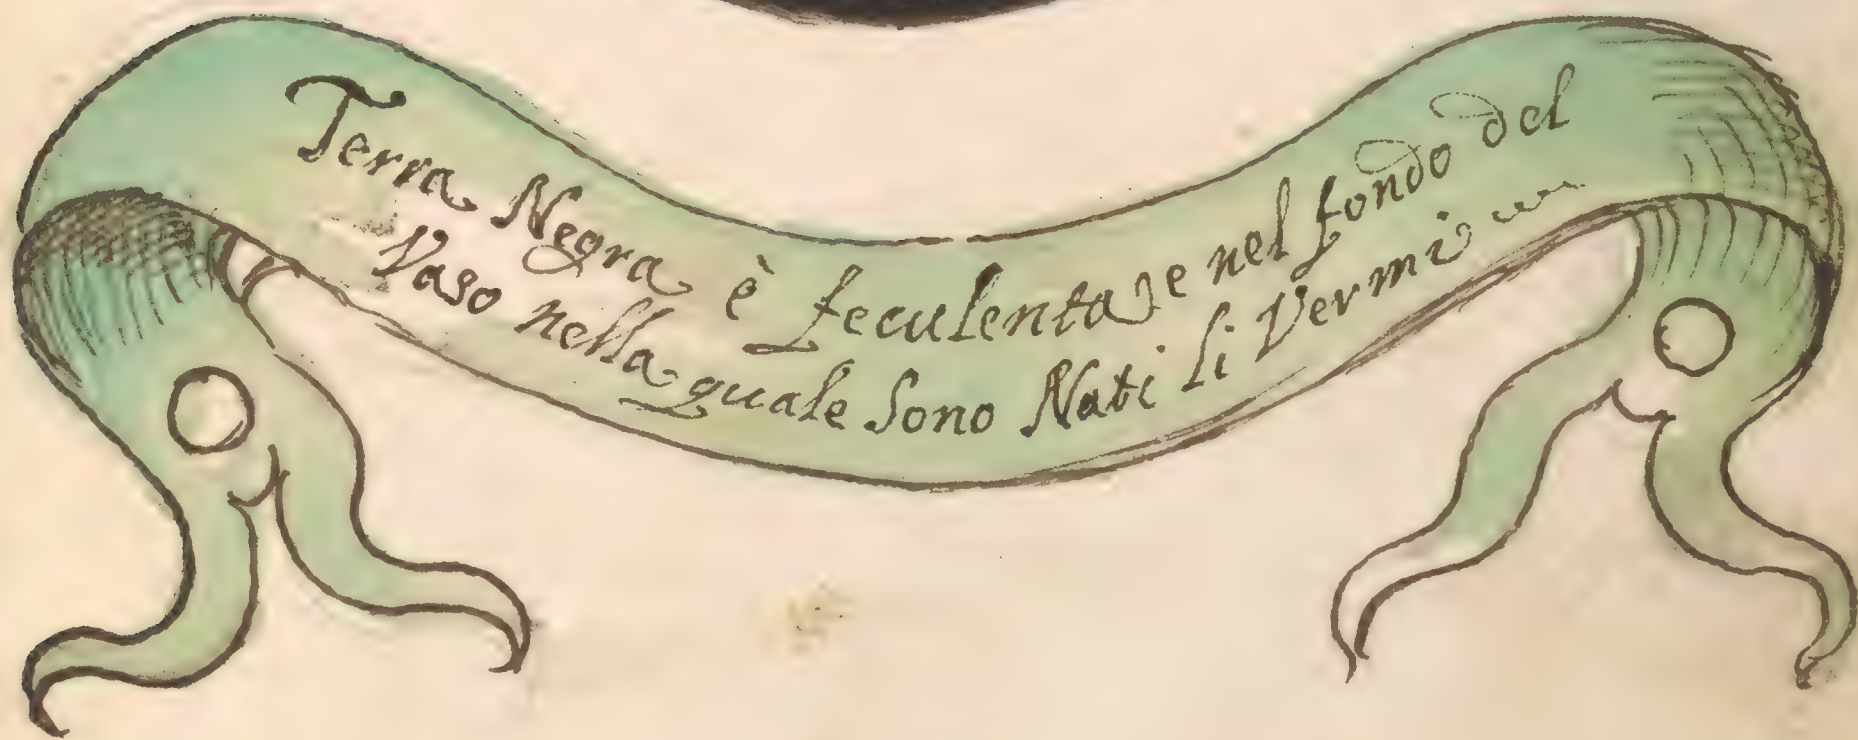 Terra Negra è feculenta e nel fondo del
Vaso nella quale Sono Nati li Vermi